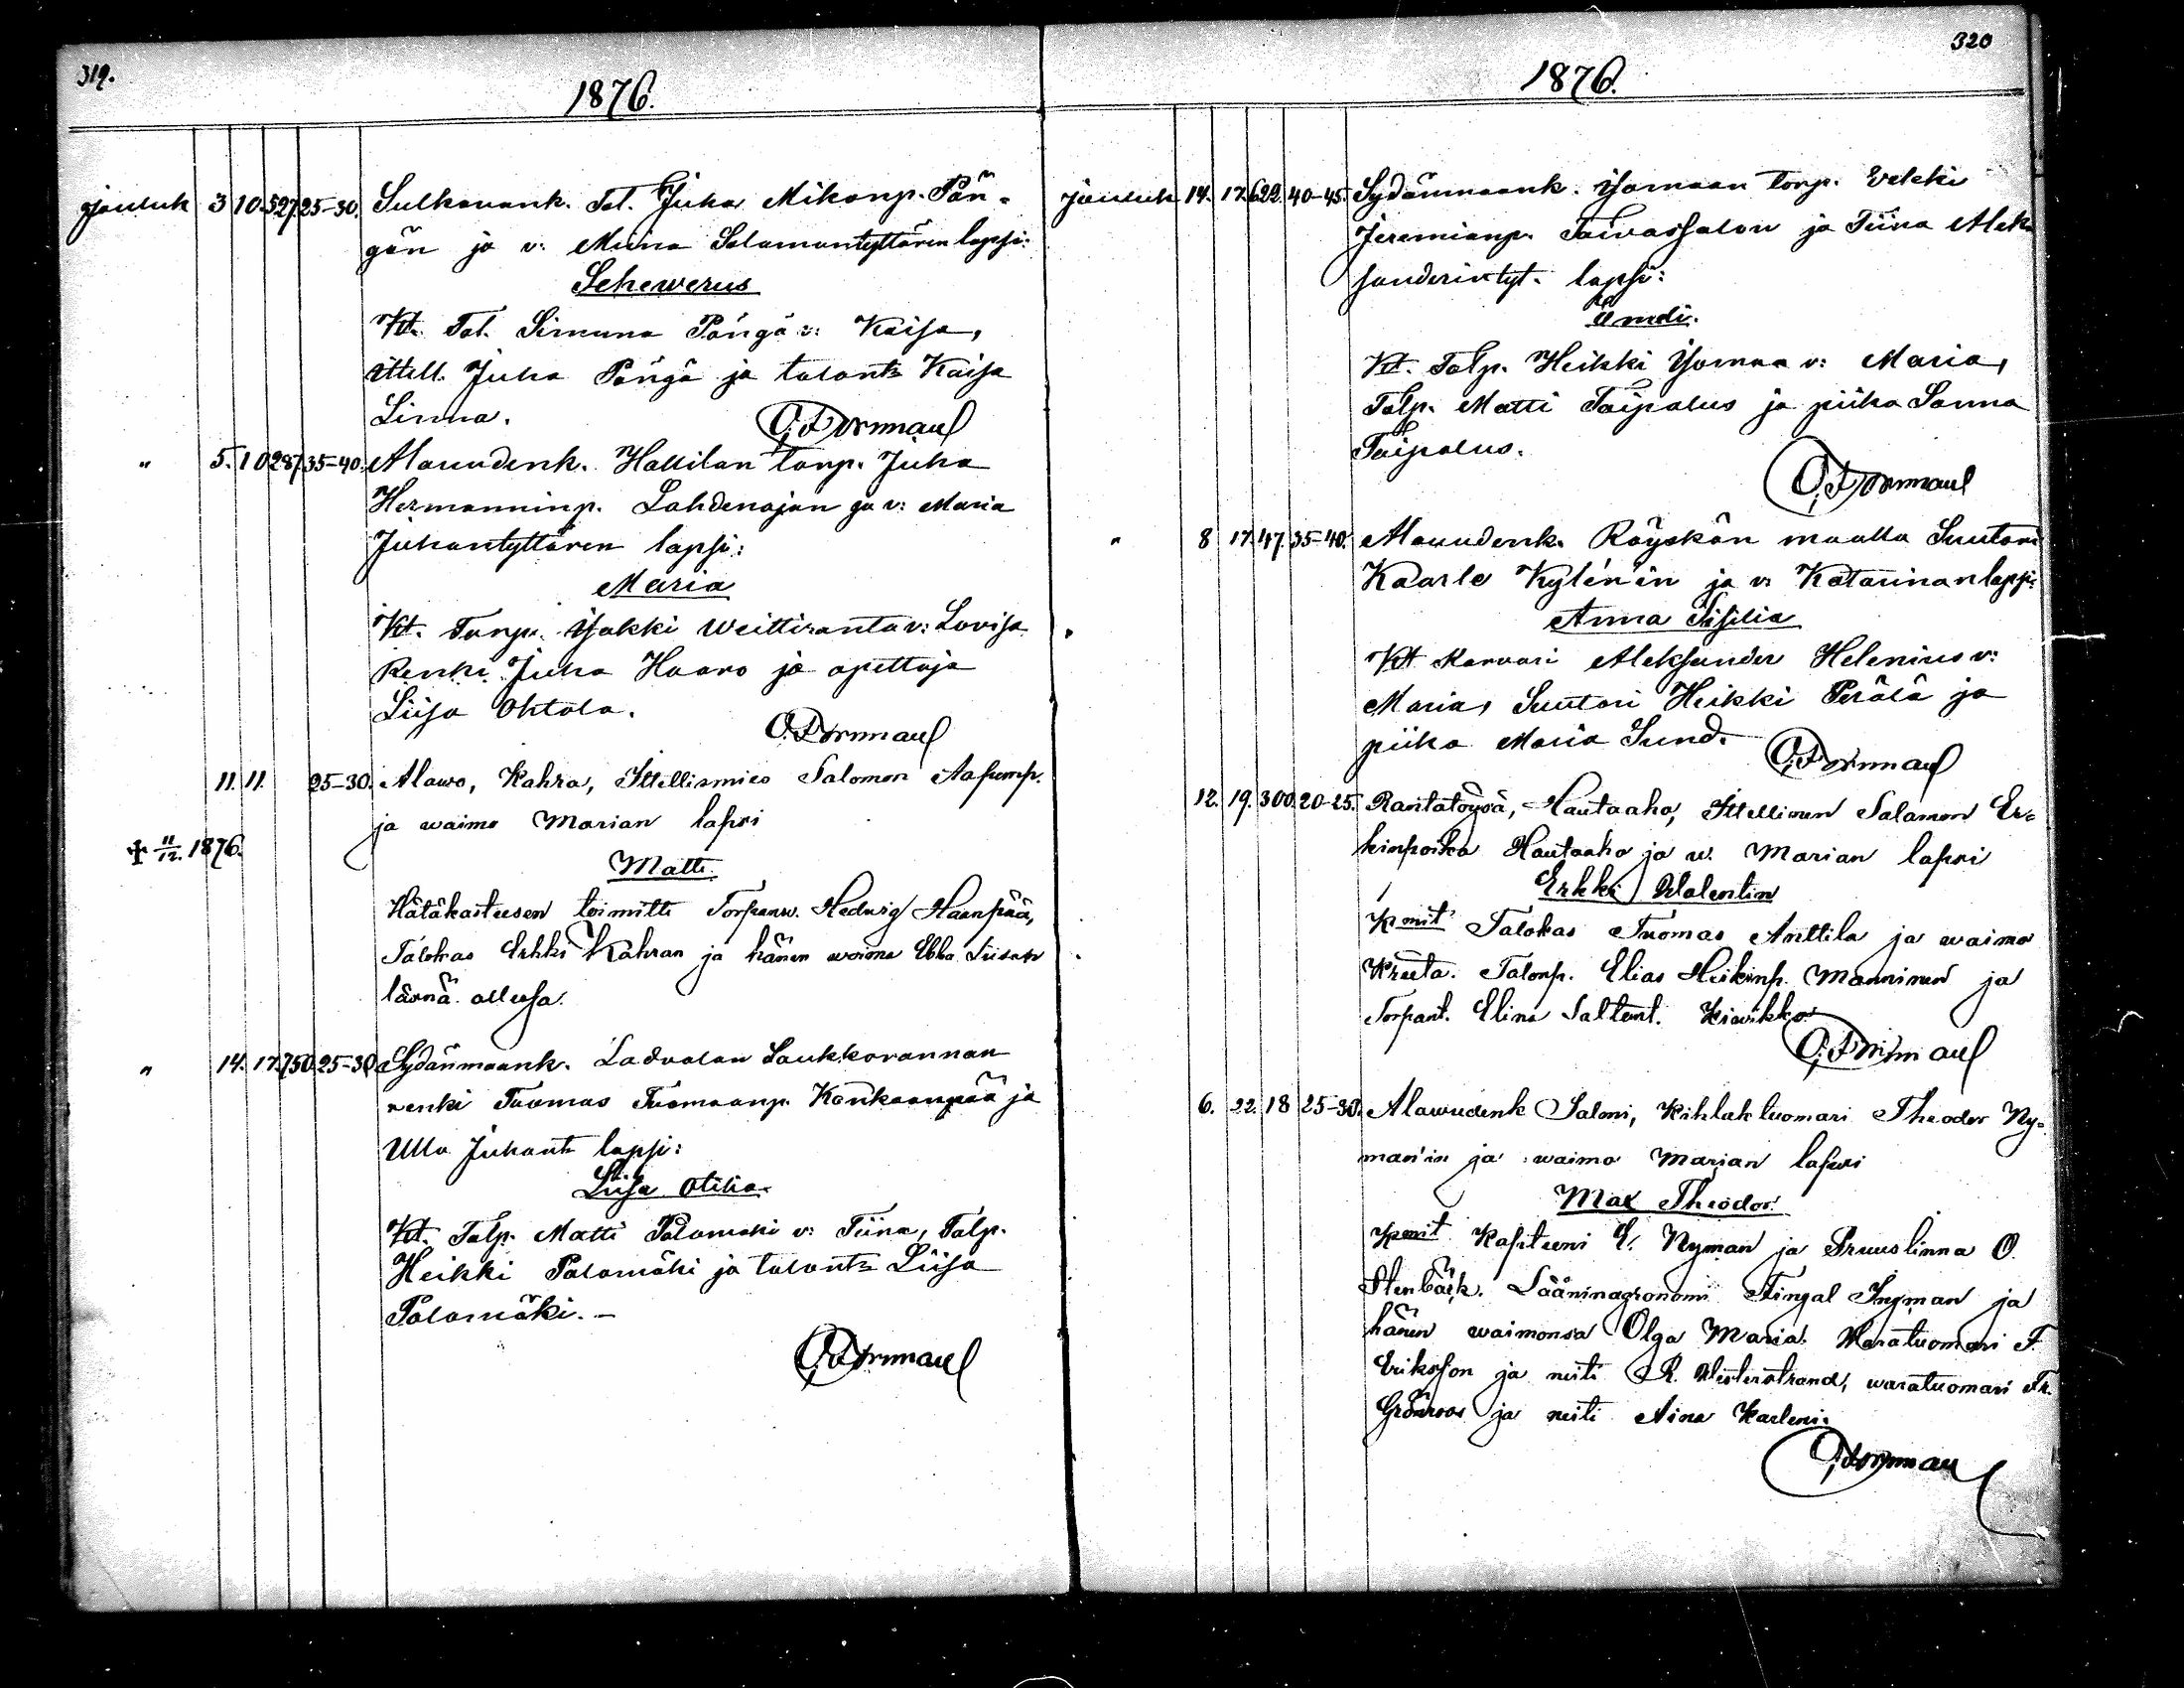 319.
1876.
jouluk 3 10. 527. 25-30. Sulkavank. Tal. Juha Mikonp. Pän-
gän ja v: Miina Salamontyttären lapsi:
Sehewerus
Kt. Tal. Simuna Pängä v: Kaisa,
ittell. Juha Pängä ja talont: Kaisa
Linna.
" 5. 10 287. 35-40. Alavudenk. Hallilan torp. Juha
Hermanninp. Lahdenajan ja v: Maria
Juhantyttären lapsi:
Maria
Kt. Torp. Jakki Weittiranta v: Lovisa
Renki Juha Haaro ja opettaja
Liisa Ohtola.
11. 11. 25-30. Alawo, Kahra, Ittellismies Salomon
ja waimo Marian lapsi
✝ 11/12. 1876.
Matti.
Hätäkasteesen toimitti Torpanw. Hedwig Haanpää,
Talokas Erkki Kahran ja hänen woimo Ebba Liisan
läsnä ollessa.
" 14. 17. 750. 25-30 Sydänmaank. Ladvalan Laukkorannan
renki Tuomas Tuomaanp. Kankaanpää ja
Ulla Juhant: lapsi:
Liisa Otilia
Kt. Talp. Matti Palomäki v: Tiina, Talp.
Heikki Palomäki ja talont: Liisa
Palomäki. -
320
1876.
jouluk 14. 17. 622. 40-45. Sydänmaank. torp. Erkki
Jeremianp. Taivassalon ja Tiina Alek-
sanderintyt. lapsi:
Kt. Talp. Heikki v: Maria,
Talp. Matti Taipalus ja piika Sanna
Taipalus.
" 8 17. 47. 35-40. Alavudenk. Röyskön maalla Suutari
Kaarle Kylén'in ja v: Katariinan lapsi:
Anna Sisilia
Kt Karvari Aleksander Helenius v:
Maria, Suutari Heikki Perälä ja
piika Maria Sund.
12. 19. 300. 20-25. Rantatöysä, Hautaaho, Ittellinen Salamon Er-
kinpoika Hautaaho ja w. Marian lapsi
Erkki Walentin
Kmit Talokas Tuomas Anttila ja waimo
Kreeta. Talonp. Elias Heikinp. Manninen ja
Torpant. Elina Saltent. Kiwikko.
6. 22. 18 25-30. Alawudenk Salmi, Kihlak tuomari Theodor Ny-
man'in ja waimo Marian lapsi
Max Theodor.
Kmit Kapteeni E. Nyman ja Pruuslinna O.
Stenbäck. Lääninagronomi Fingal Ingman ja
hänen waimonsa Olga Maria. Waratuomari F.
Eriksson ja neiti R. Westerstrand, waratuomari Fr.
Grönroos ja neiti Aina